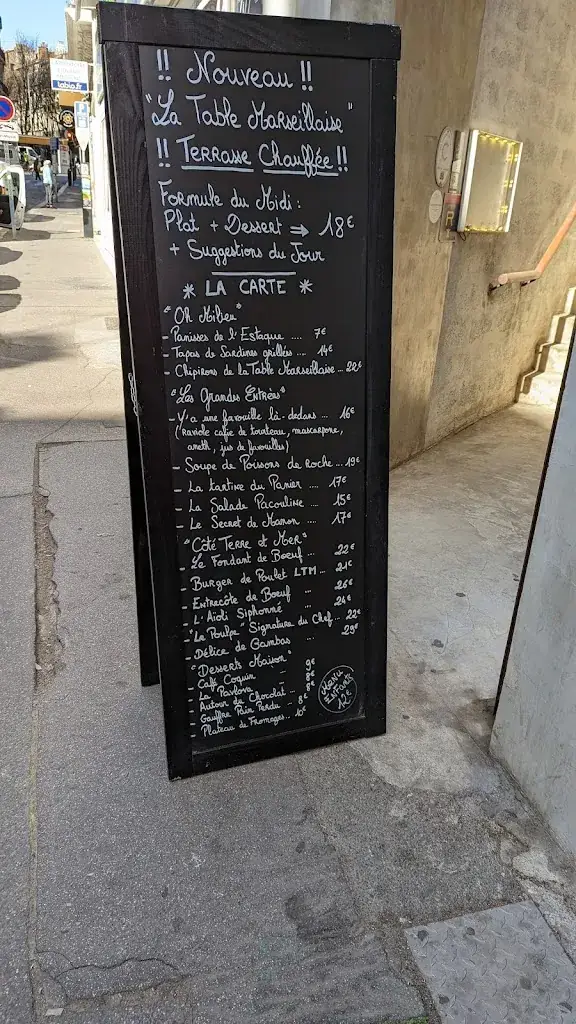 !! Nouveau !!
"La Table Marseillaise"
!! Terrasse Chauffée !!
Formule du Midi :
Plat + Dessert ⇒ 18€
+ Suggestions du Jour
* LA CARTE *
"Oh Milieu"
- Panisses de l'Estaque .... 7€
- Tapas de Sardines grillées .... 14€
- Chipirons de la Table Marseillaise ... 22€
"Les Grandes Entrées"
- Y'a une favouille là-dedans .... 16€
(raviole cafie de tourteau, mascarpone,
aneth, jus de favouilles)
- Soupe de Poissons de roche ... 19€
- La tartine du Panier .... 17€
- La Salade Pacouline .... 15€
- Le Secret de Manon .... 17€
"Côté Terre et Mer"
- Le Fondant de Boeuf ... 22€
- Burger de Poulet LTM ... 21€
- Entrecôte de Boeuf ... 26€
- L'Aïoli Siphonné ... 24€
- "Le Poulpe" Signature du Chef ... 22€
- Délice de Gambas ... 29€
"Desserts Maison"
- Café Coquin 9€
- La Pavlova 8€
- Autour du Chocolat .. 8€
- Gauffre Pain Perdu .. 8€
- Plateau de Fromages .. 10€
Menu
Enfants
12€
labio.fr